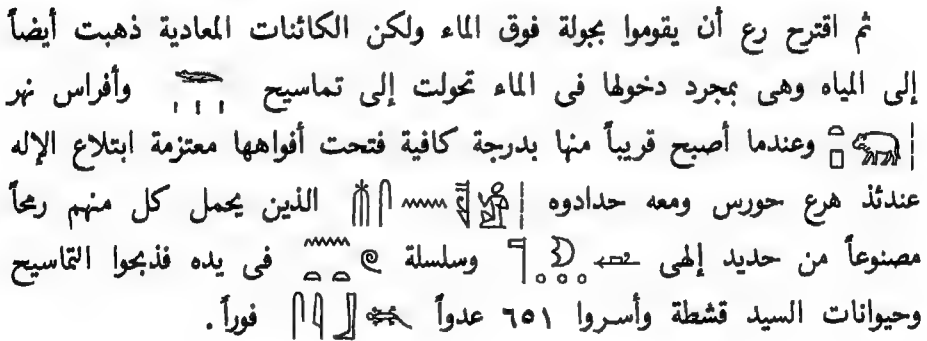 ثم اقترح رع أن يقوموا بجولة فوق الماء ولكن الكائنات المعادية ذهبت أيضاً
إلى المياه وهى بمجرد دخولها فى الماء تحولت إلى تماسيح وأفراس نهر
وعندما أصبح قريباً منها بدرجة كافية فتحت أفواهها معتزمة ابتلاع الإله
عندئذ هرع حورس ومعه حدادوه الذين يحمل كل منهم رمحاً
مصنوعاً من حديد إلهى وسلسلة فى يده فذبحوا التماسيح
وحيوانات السيد قشطة وأسروا ٦٥١ عدواً فوراً .